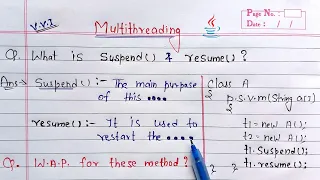 V.V.I
Multithreading
Page No.
Date : / /
Q. What is Suspend() & resume() ?
Ans:- Suspend() :- The main purpose
of this ....
resume():- It is used to
restart the .....
Q. W.A.P. for these method ?
class A
{ p.s.v.m(String a[s])
{
t1 = new A();
t2 = new A();
t1.Suspend();
t1.resume();
} }